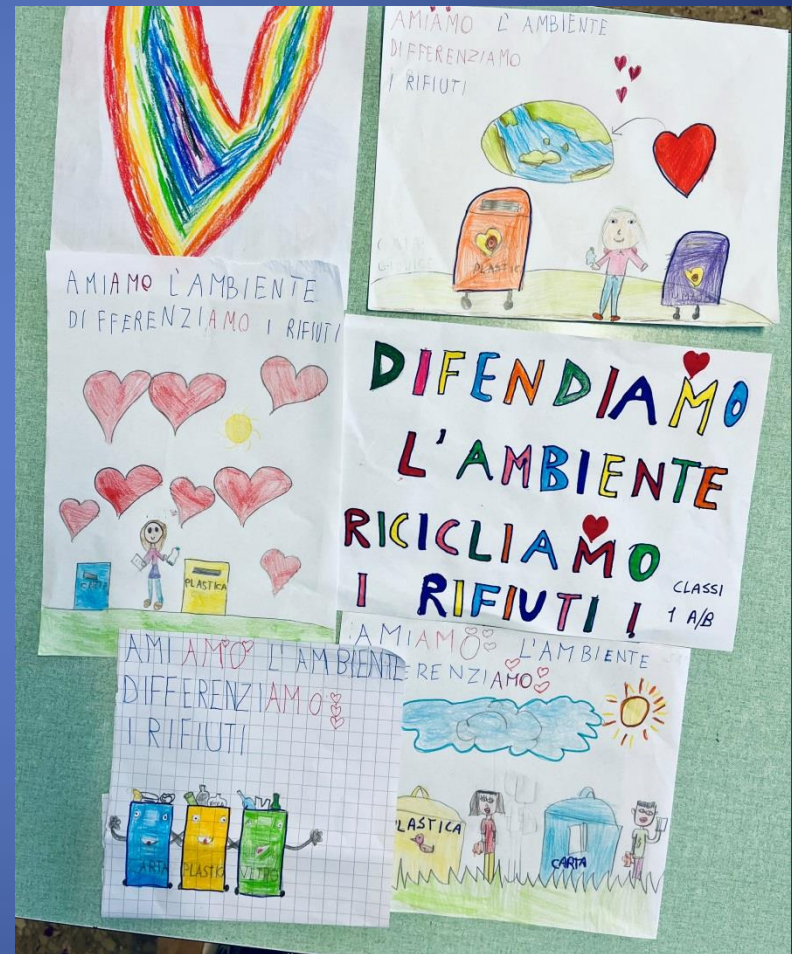 AMIAMO L'AMBIENTE
DIFFERENZIAMO
I RIFIUTI
PLASTIC
AMIAMO L'AMBIENTE
DIFFERENZIAMO I RIFIUTI
CARTA
PLASTICA
DIFENDIAMO
L'AMBIENTE
RICICLIAMO
I RIFIUTI !
CLASSI
1 A/B
AMIAMO L'AMBIENTE
DIFFERENZIAMO
I RIFIUTI
CARTA
PLASTIC
VETRO
AMIAMO L'AMBIENTE
RENZIAMO
LASTICA
CARTA